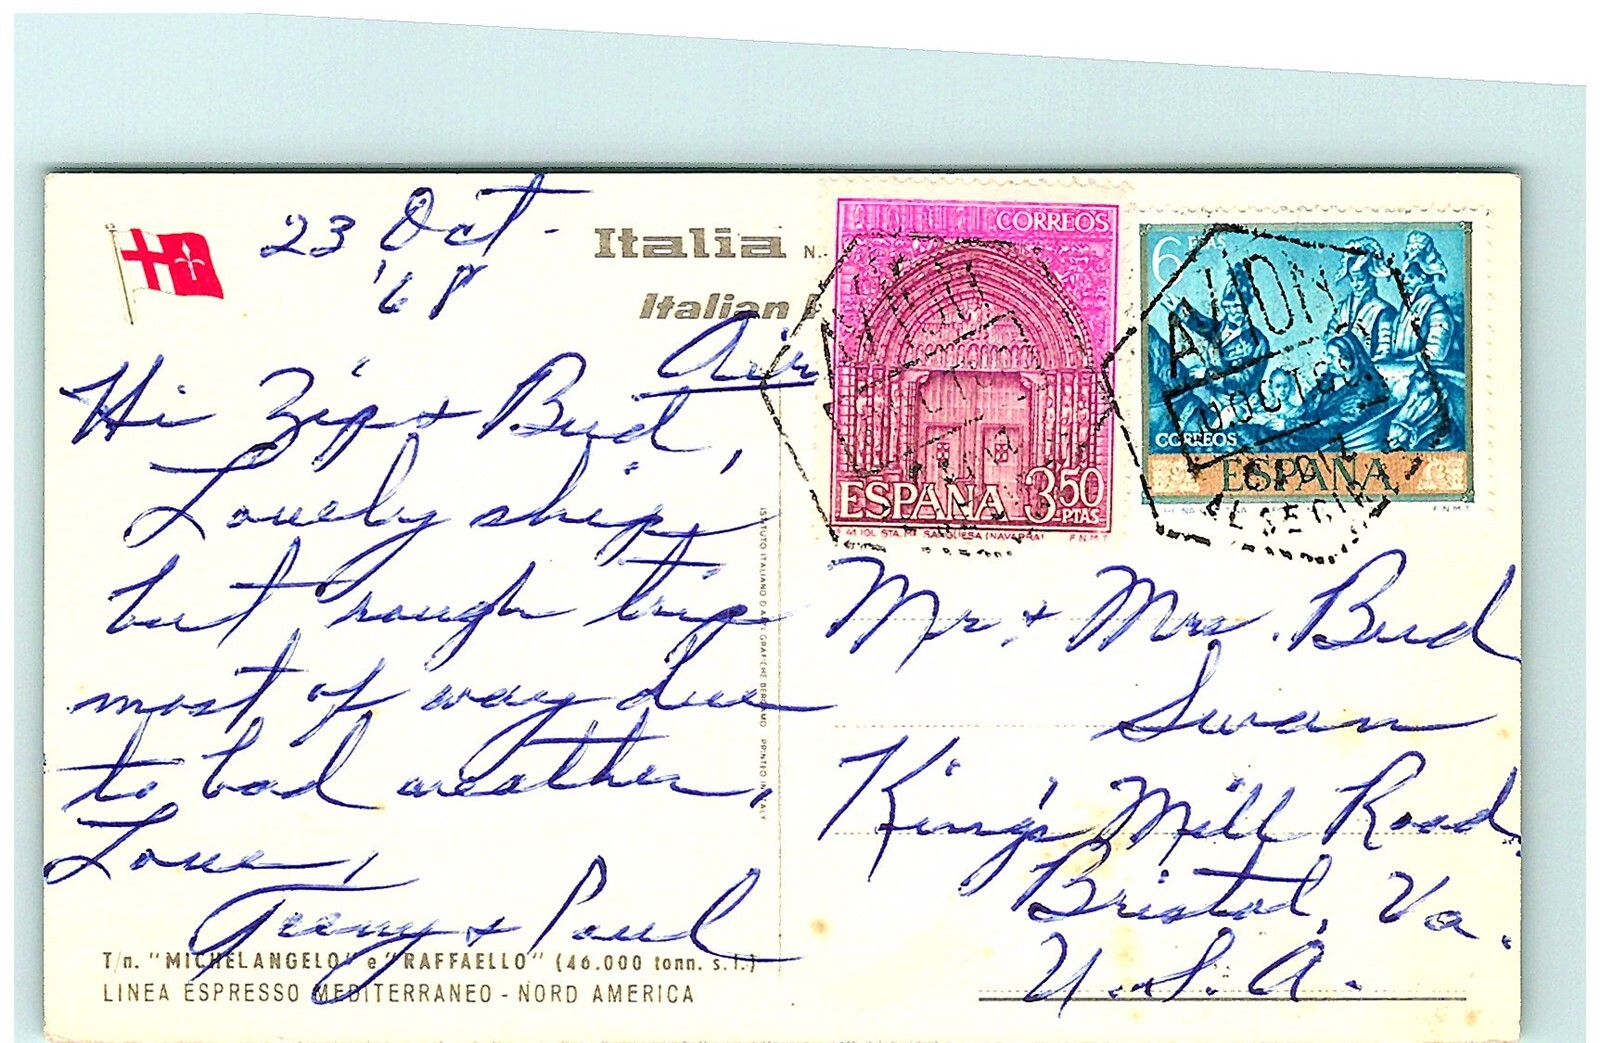 23 Oct.
'68
Italia
Italian
Air
Hi Zip & Bud,
Lovely ship,
but rough trip
most of way due
to bad weather,
Love,
Teeny & Paul
T/n. "MICHELANGELO" e "RAFFAELLO" (46.000 tonn. s.l.)
LINEA ESPRESSO MEDITERRANEO - NORD AMERICA
ISTITUTO ITALIANO D'ARTI GRAFICHE BERGAMO PRINTED IN ITALY
CORREOS
ESPAÑA 3,50
PTAS
STA. Mª SANGUESA (NAVARRA) F.N.M.T
6 PTAS
CORREOS
ESPAÑA
F.N.M.T
AVION
OCT 68
Mr. & Mrs. Bud
Swan
King's Mill Road
Bristol, Va.
U.S.A.